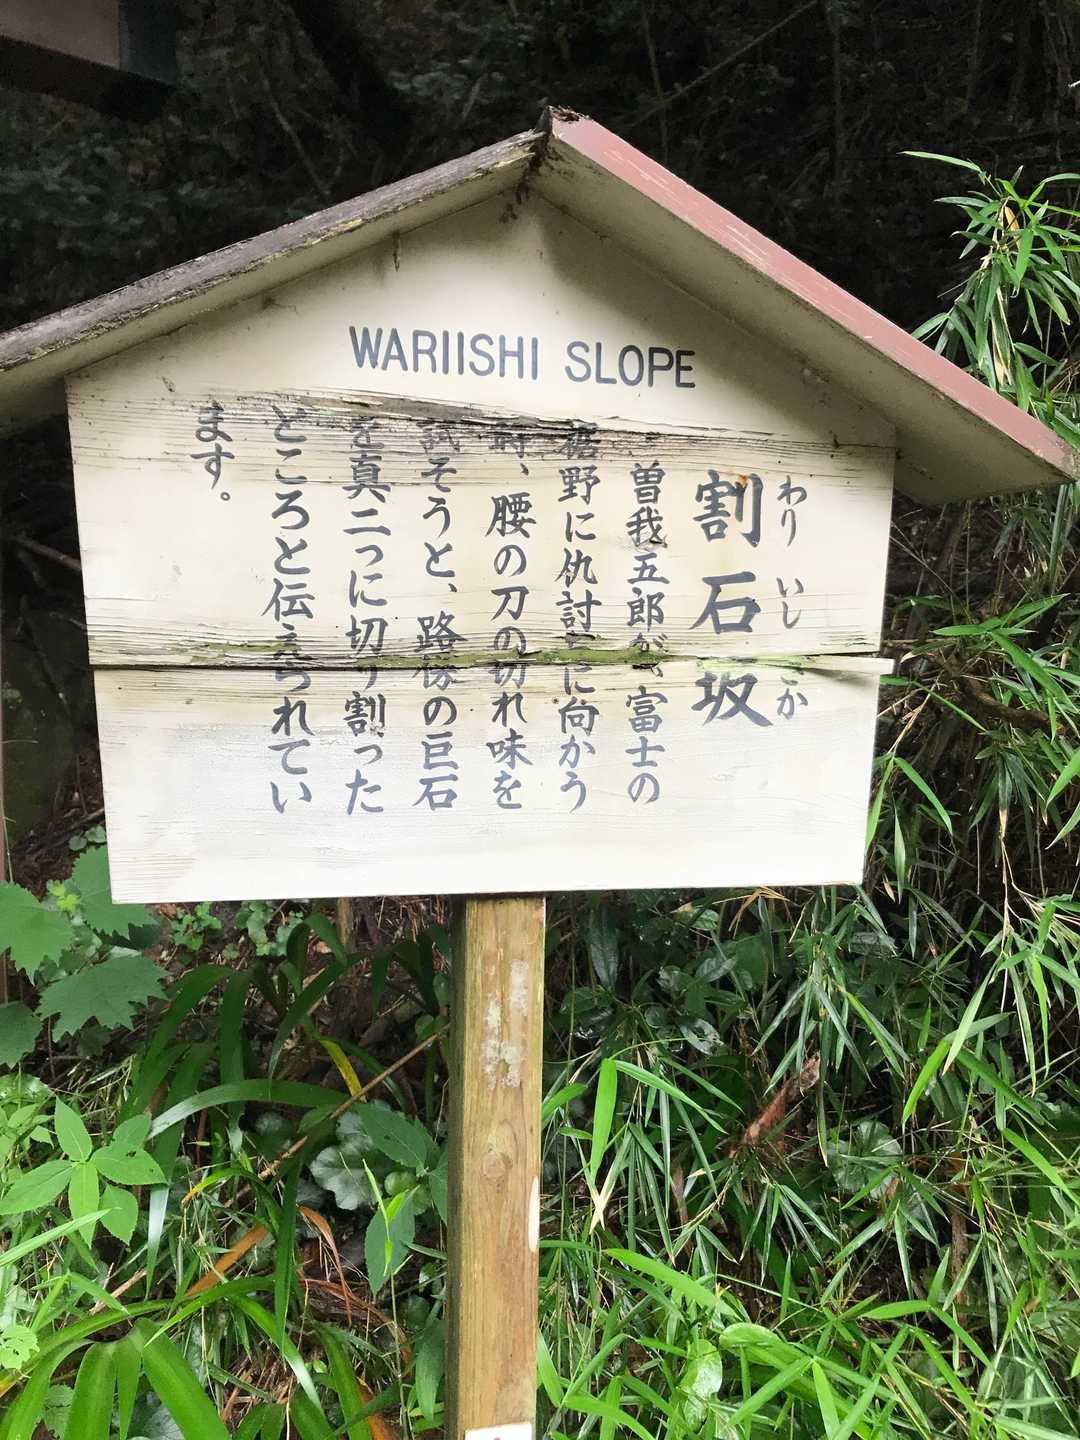 WARIISHI SLOPE
わり いし ざか
割石坂
曽我五郎が、富士の
裾野に仇討ちに向かう
時、腰の刀の切れ味を
試そうと、路傍の巨石
を真二つに切り割った
ところと伝えられてい
ます。